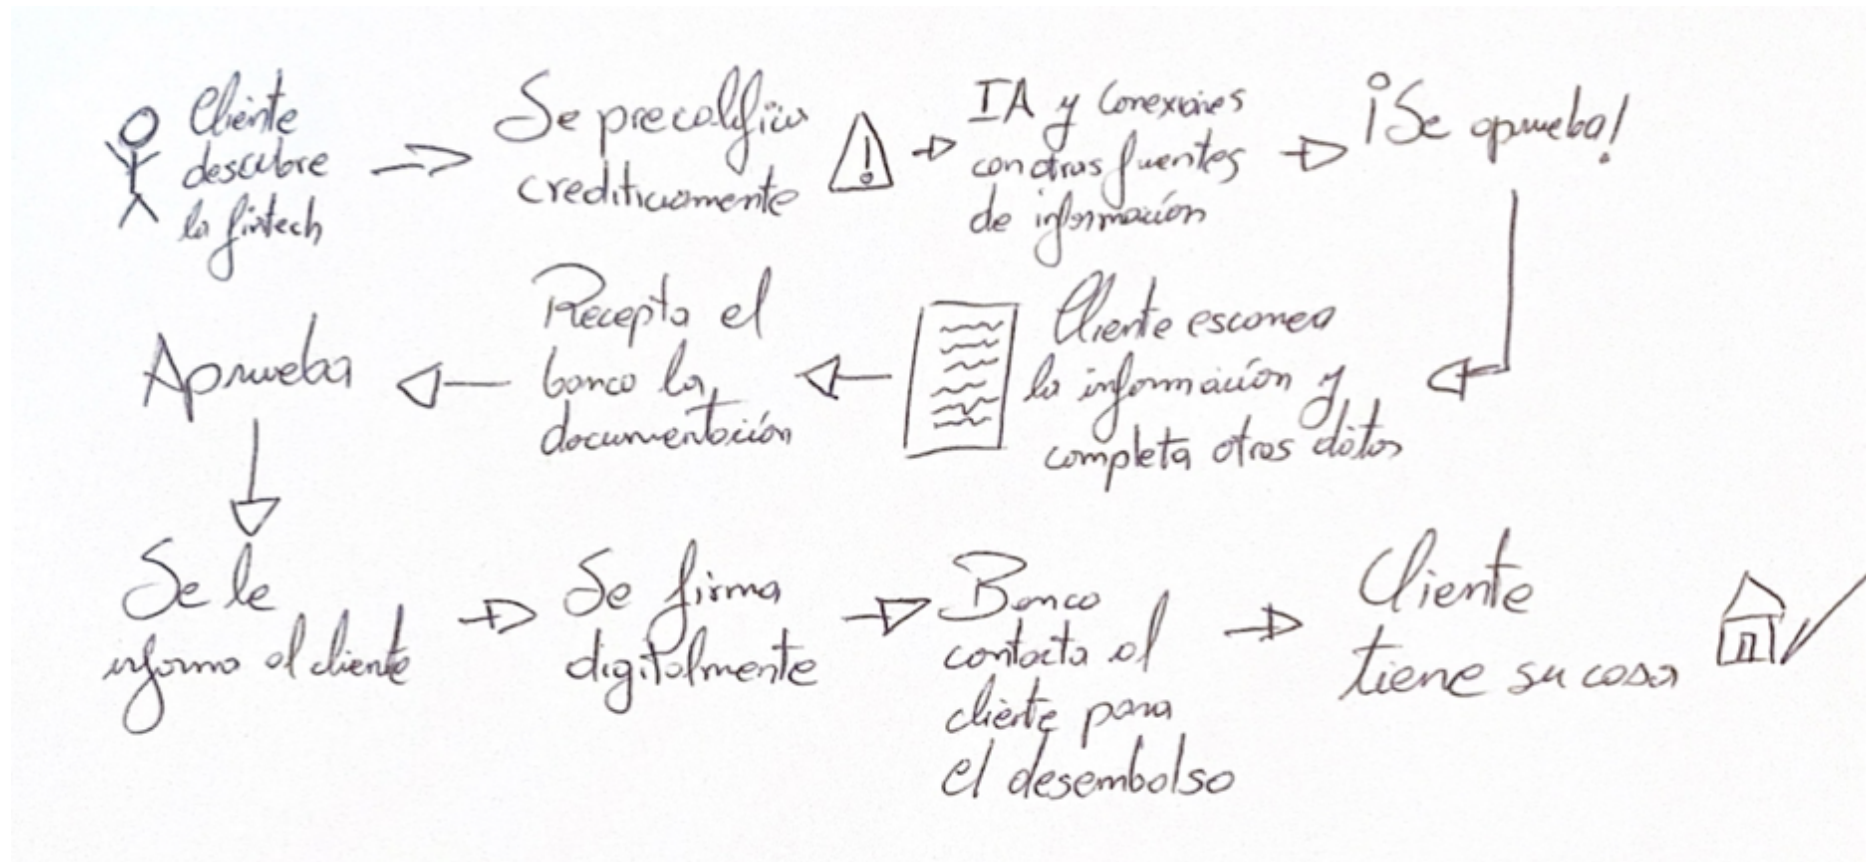 Cliente
descubre
la fintech
Se precalifica
crediticiamente
!
IA y Conexiones
con otras fuentes
de información
¡Se aprueba!
Cliente escanea
la información y
completa otros datos
Recepta el
banco la
documentación
Aprueba
Se le
informa al cliente
Se firma
digitalmente
Banco
contacta al
cliente para
el desembolso
Cliente
tiene su casa